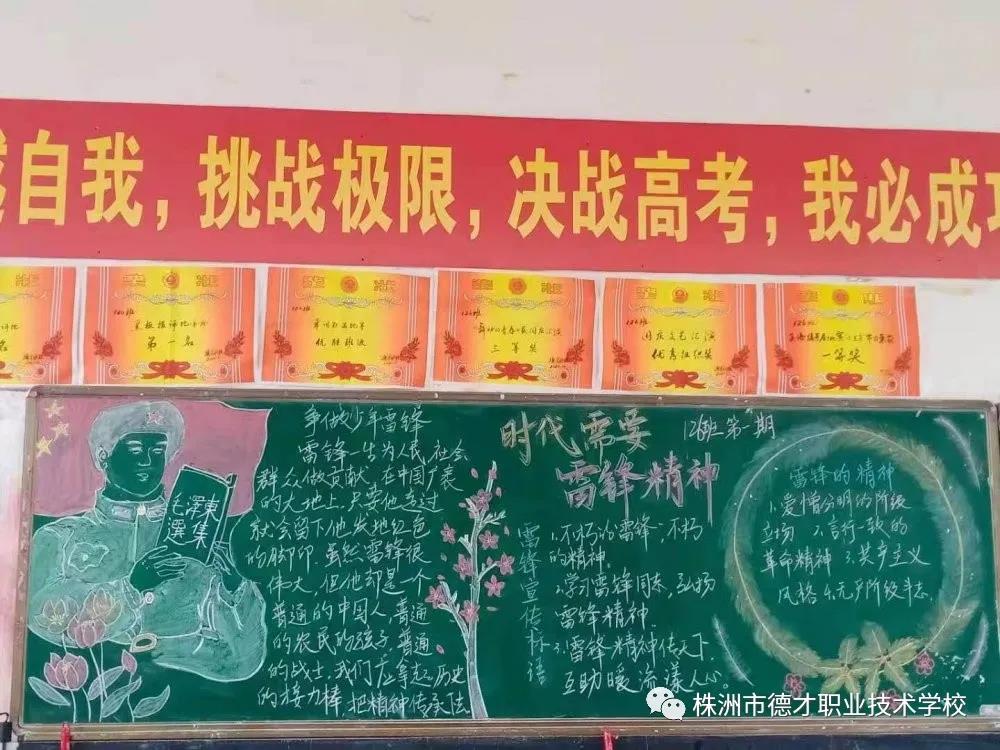 自我，挑战极限，决战高考，我必成功
第一名
优胜班级
三等奖
国庆文艺汇演
优秀组织奖
一等奖
毛澤東
選集
争做少年雷锋
雷锋一生为人民，社会
群众做贡献，在中国广袤
的大地上，只要他走过
就会留下他发地红色
的脚印。虽然雷锋很
伟大，但他却是一个
普通的中国人，普通
的农民的孩子，普通
的战士，我们应拿起历史
的接力棒，把精神传承法
时代需要
雷锋精神
126班第一期
雷锋宣传标语
1.不朽的雷锋，不朽
的精神.
2.学习雷锋同志，弘扬
雷锋精神.
3.雷锋精神传天下，
互助暖流漾人心
雷锋的精神
1.爱憎分明的阶级
立场 2.言行一致的
革命精神 3.共产主义
风格 4.无产阶级斗志.
株洲市德才职业技术学校